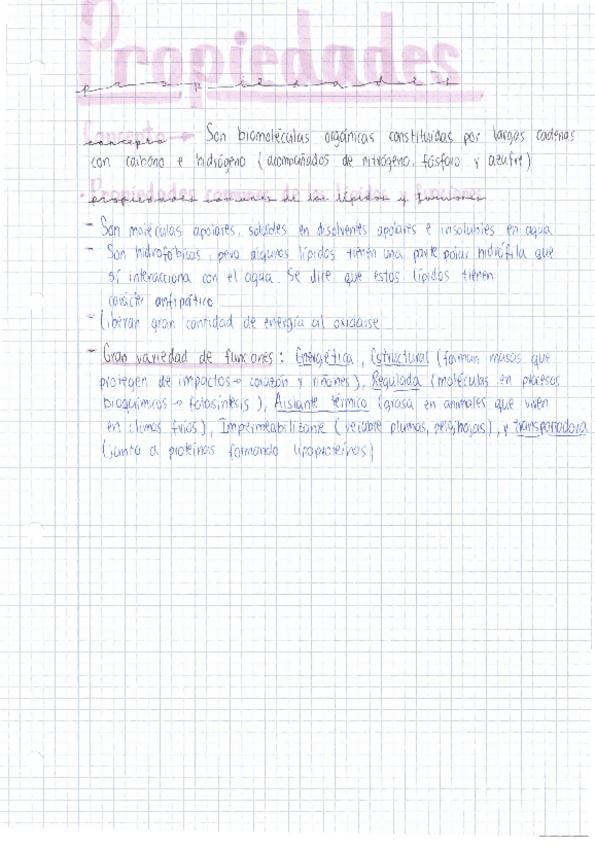 Propiedades
propiedades
Concepto → Son biomoléculas orgánicas constituidas por largas cadenas
concepto
con carbono e hidrógeno (acompañados de nitrógeno, fósforo y azufre)
- Propiedades comunes de los lípidos y funciones
propiedades comunes de los lípidos y funciones
- Son moléculas apolares, solubles en disolventes apolares e insolubles en agua
- Son hidrofóbicas, pero algunos lípidos tienen una parte polar hidrófila que
sí interacciona con el agua. Se dice que estos lípidos tienen
carácter anfipático
- Liberan gran cantidad de energía al oxidarse
- Gran variedad de funciones: Energética, Estructural (forman masas que
protegen de impactos → corazón y riñones), Regulada (moléculas en procesos
bioquímicos → fotosíntesis), Aislante térmico (grasa en animales que viven
en climas fríos), Impermeabilizante (recubre plumas, pelo, hojas), y transportadora
(junto a proteínas formando lipoproteínas)